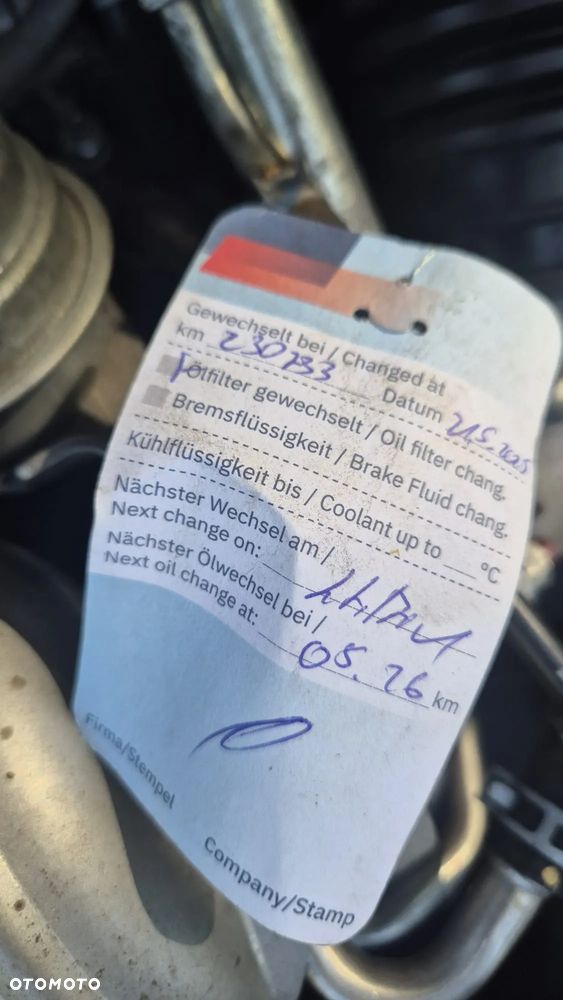 Gewechselt bei / Changed at
km 230733 Datum 21.5.2025
Ölfilter gewechselt / Oil filter chang.
Bremsflüssigkeit / Brake Fluid chang.
Kühlflüssigkeit bis / Coolant up to ___ °C
Nächster Wechsel am /
Next change on:
Nächster Ölwechsel bei /
Next oil change at: 05.26 km
Firma/Stempel
Company/Stamp
OTOMOTO